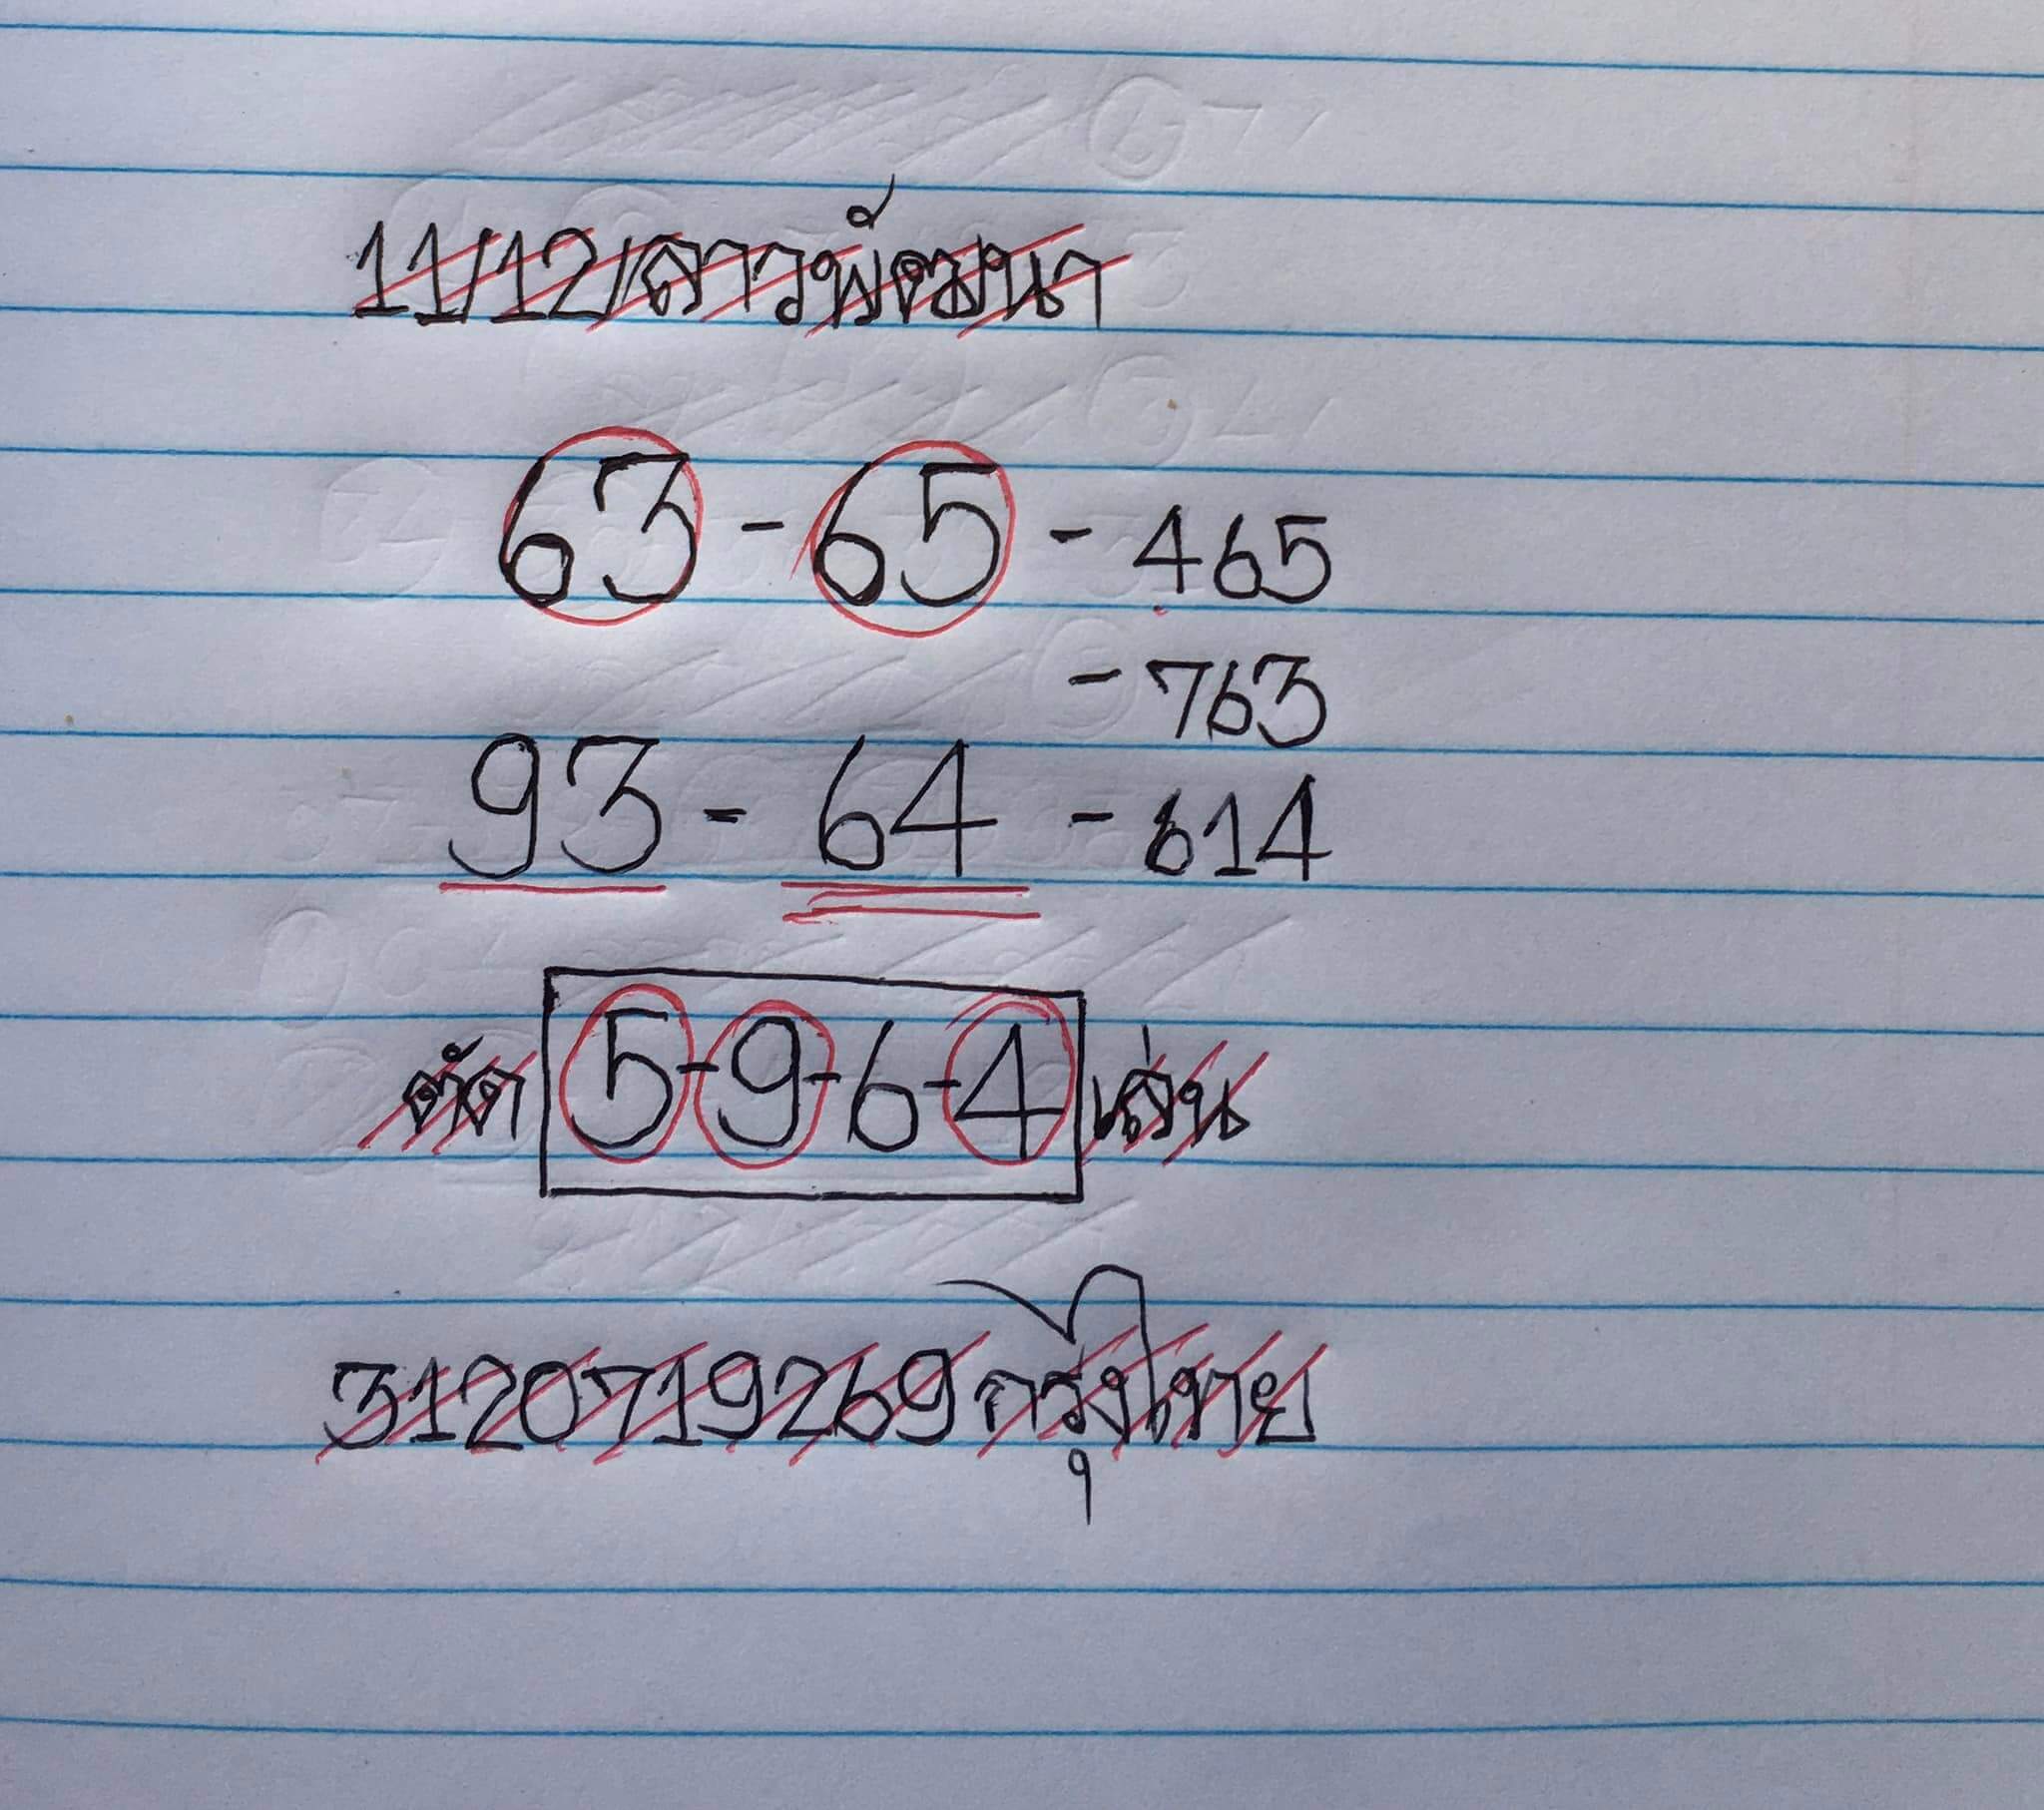 11/12/ลาวพัฒนา
63 - 65 - 465
- 763
93 - 64 - 614
ตัด 5-9-6-4 เล่น
3120719269 กรุงไทย